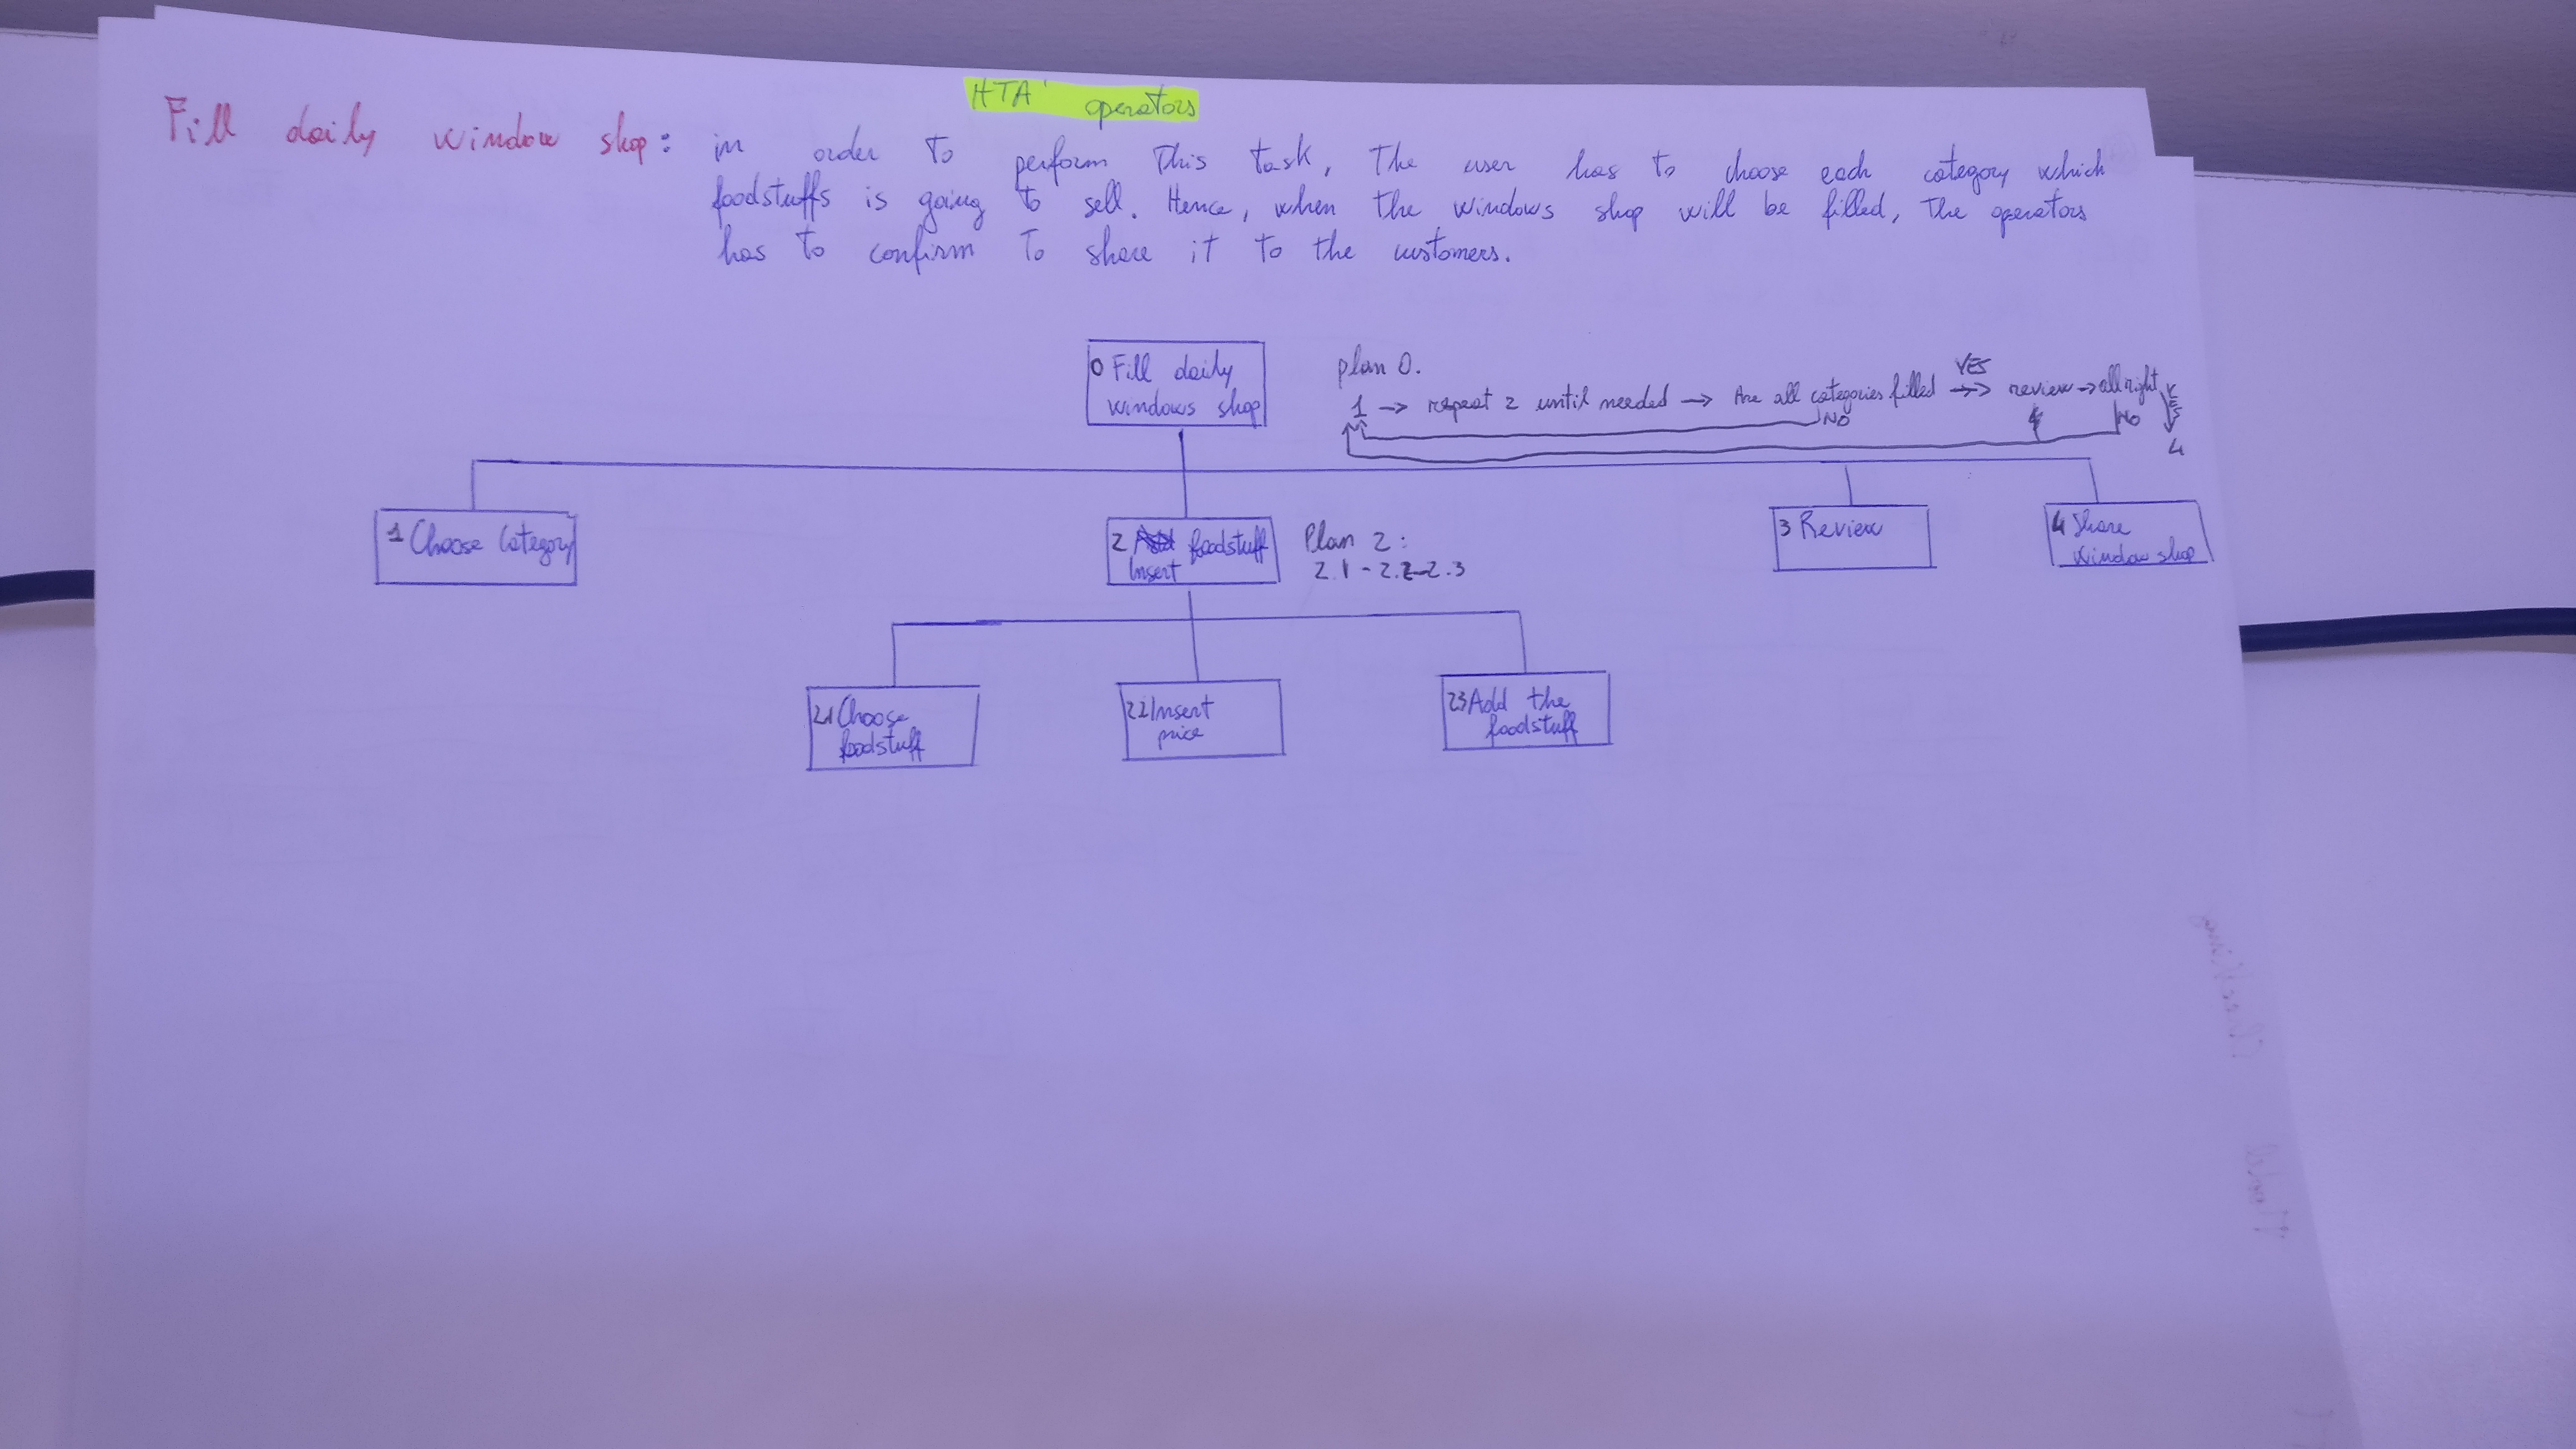 HTA operators
Fill daily window shop: in order to perform this task, the user has to choose each category which
foodstuffs is going to sell. Hence, when the windows shop will be filled, the operators
has to confirm to share it to the customers.
0 Fill daily
windows shop
plan 0.
YES
1 → repeat 2 until needed → Are all categories filled →> review → all right
NO
NO
YES
4
1 Choose Category
2 foodstuff
Insert
Plan 2:
2.1 - 2.2 - 2.3
3 Review
4 Share
Window shop
21 Choose
foodstuff
22 Insert
price
23 Add the
foodstuff